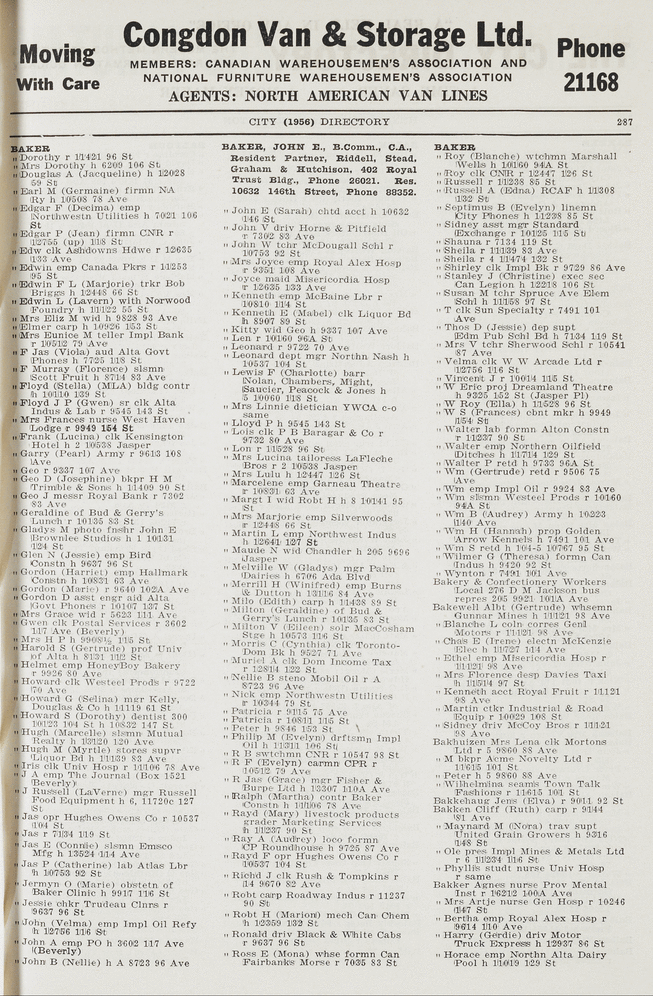 Moving
With Care
Congdon Van & Storage Ltd.
MEMBERS: CANADIAN WAREHOUSEMEN'S ASSOCIATION AND
NATIONAL FURNITURE WAREHOUSEMEN'S ASSOCIATION
AGENTS: NORTH AMERICAN VAN LINES
Phone
21168
CITY (1956) DIRECTORY 287
BAKER
" Dorothy r 11421 96 St
" Mrs Dorothy h 6209 106 St
" Douglas A (Jacqueline) h 12028
59 St
" Earl M (Germaine) firmn NA
Ry h 10508 78 Ave
" Edgar F (Decima) emp
Northwestn Utilities h 7021 106
St
" Edgar P (Jean) firmn CNR r
12755 (up) 118 St
" Edw clk Ashdowns Hdwe r 12635
133 Ave
" Edwin emp Canada Pkrs r 11253
95 St
" Edwin F L (Marjorie) trkr Bob
Briggs h 11618 64 St
" Edwin L (Lavern) with Norwood
Foundry h 11122 55 St
" Mrs Eliz M wid h 9828 93 Ave
" Elmer carp h 10926 153 St
" Mrs Eunice M teller Impl Bank
r 10512 79 Ave
" F Jas (Viola) aud Alta Govt
Phones h 7725 118 St
" F Murray (Florence) slsmn
Scott Fruit h 8714 83 Ave
" Floyd (Stella) (MLA) bldg contr
h 10110 139 St
" Floyd J P (Gwen) sr clk Alta
Indus & Lab r 9545 143 St
" Mrs Frances nurse West Haven
Lodge r 9949 154 St
" Frank (Lucina) clk Kensington
Hotel h 2 10538 Jasper
" Garry (Pearl) Army r 9613 108
Ave
" Geo r 9337 107 Ave
" Geo D (Josephine) bkpr H M
Trimble & Sons h 11409 90 St
" Geo J messr Royal Bank r 7302
83 Ave
" Geraldine of Bud & Gerry's
Lunch r 10135 83 St
" Gladys M photo fnshr John E
Brownlee Studios h 1 10131
124 St
" Glen N (Jessie) emp Bird
Constn h 9637 96 St
" Gordon (Harriet) emp Hallmark
Constn h 10831 63 Ave
" Gordon (Marie) r 9640 102A Ave
" Gordon D asst engr aid Alta
Govt Phones r 10107 137 St
" Mrs Grace wid r 5623 111 Ave
" Gwen clk Postal Services r 3602
117 Ave (Beverly)
" Mrs H P h 9908½ 115 St
" Harold S (Gertrude) prof Univ
of Alta h 8131 112 St
" Helmet emp HoneyBoy Bakery
r 9926 80 Ave
" Howard clk Westeel Prods r 9722
70 Ave
" Howard G (Selina) mgr Kelly,
Douglas & Co h 11119 61 St
" Howard S (Dorothy) dentist 300
10123 104 St h 10832 147 St
" Hugh (Marcelle) slsmn Mutual
Realty h 13120 120 Ave
" Hugh M (Myrtle) stores supvr
Liquor Bd h 11139 83 Ave
" Iris clk Univ Hosp r 11106 78 Ave
" J A emp The Journal (Box 1521
(Beverly)
" J Russell (LaVerne) mgr Russell
Food Equipment h 6, 11720c 127
St
" Jas opr Hughes Owens Co r 10537
104 St
" Jas r 7134 119 St
" Jas E (Connie) slsmn Emsco
Mfg h 13524 114 Ave
" Jas P (Catherine) lab Atlas Lbr
h 10753 92 St
" Jermyn O (Marie) obstetn of
Baker Clinic h 9917 116 St
" Jessie chkr Trudeau Clnrs r
9637 96 St
" John (Velma) emp Impl Oil Refy
h 12756 116 St
" John A emp PO h 3602 117 Ave
(Beverly)
" John B (Nellie) h A 8723 96 Ave
BAKER, JOHN E., B.Comm., C.A.,
Resident Partner, Riddell, Stead,
Graham & Hutchison, 402 Royal
Trust Bldg., Phone 26021. Res.
10632 146th Street, Phone 88352.
" John E (Sarah) chtd acct h 10632
146 St
" John V driv Horne & Pitfield
r 7302 83 Ave
" John W tchr McDougall Schl r
10753 92 St
" Mrs Joyce emp Royal Alex Hosp
r 9351 108 Ave
" Joyce maid Misericordia Hosp
r 12635 133 Ave
" Kenneth emp McBaine Lbr r
10810 114 St
" Kenneth E (Mabel) clk Liquor Bd
h 8907 89 St
" Kitty wid Geo h 9337 107 Ave
" Len r 10160 96A St
" Leonard r 9722 70 Ave
" Leonard dept mgr Northn Nash h
10537 104 St
" Lewis F (Charlotte) barr
Nolan, Chambers, Might,
Saucier, Peacock & Jones h
5 10060 118 St
" Mrs Linnie dietician YWCA c-o
same
" Lloyd P h 9545 143 St
" Lois clk P B Baragar & Co r
9732 80 Ave
" Lon r 11528 96 St
" Mrs Lucina tailoress LaFleche
Bros r 2 10538 Jasper
" Mrs Lulu h 12447 126 St
" Marcelene emp Garneau Theatre
r 10831 63 Ave
" Margt I wid Robt H h 8 10141 95
St
" Mrs Marjorie emp Silverwoods
r 12448 66 St
" Martin L emp Northwest Indus
h 12641 127 St
" Maude N wid Chandler h 205 9696
Jasper
" Melville W (Gladys) mgr Palm
Dairies h 6706 Ada Blvd
" Merrill H (Winifred) emp Burns
& Dutton h 13116 84 Ave
" Milo (Edith) carp h 11438 89 St
" Milton (Geraldine) of Bud &
Gerry's Lunch r 10135 83 St
" Milton V (Eileen) solr MacCosham
Stge h 10573 116 St
" Morris C (Cynthia) clk Toronto-
Dom Bk h 9527 71 Ave
" Muriel A clk Dom Income Tax
r 12814 122 St
" Nellie B steno Mobil Oil r A
8723 96 Ave
" Nick emp Northwestn Utilities
r 10344 79 St
" Patricia r 9115 75 Ave
" Patricia r 10841 115 St
" Peter h 9846 153 St
" Philip M (Evelyn) drftsmn Impl
Oil h 11311 106 St
" R B swtchmn CNR r 10547 98 St
" R F (Evelyn) carmn CPR r
10512 79 Ave
" R Jas (Grace) mgr Fisher &
Burpe Ltd h 13307 110A Ave
" Ralph (Martha) contr Baker
Constn h 11106 78 Ave
" Rayd (Mary) livestock products
grader Marketing Services
h 11237 90 St
" Ray A (Audrey) loco formn
CP Roundhouse h 9725 87 Ave
" Rayd F opr Hughes Owens Co r
10537 104 St
" Richd J clk Rush & Tompkins r
14 9670 82 Ave
" Robt carp Roadway Indus r 11237
90 St
" Robt H (Marion) mech Can Chem
h 12359 132 St
" Ronald driv Black & White Cabs
r 9637 96 St
" Ross E (Mona) whse formn Can
Fairbanks Morse r 7035 83 St
BAKER
" Roy (Blanche) wtchmn Marshall
Wells h 10160 94A St
" Roy clk CNR r 12447 126 St
" Russell r 11238 85 St
" Russell A (Edna) RCAF h 11308
132 St
" Septimus B (Evelyn) linemn
City Phones h 11238 85 St
" Sidney asst mgr Standard
Exchange r 10125 115 St
" Shauna r 7134 119 St
" Sheila r 11139 83 Ave
" Sheila r 4 11474 132 St
" Shirley clk Impl Bk r 9729 86 Ave
" Stanley J (Christine) exec sec
Can Legion h 12218 106 St
" Susan M tchr Spruce Ave Elem
Schl h 11158 97 St
" T clk Sun Specialty r 7491 101
Ave
" Thos D (Jessie) dep supt
Edm Pub Schl Bd h 7134 119 St
" Mrs V tchr Sherwood Schl r 10541
87 Ave
" Velma clk W W Arcade Ltd r
12756 116 St
" Vincent J r 10014 115 St
" W Eric proj Dreamland Theatre
h 9325 152 St (Jasper Pl)
" W Roy (Ella) h 11528 96 St
" W S (Frances) cbnt mkr h 9949
154 St
" Walter lab formn Alton Constn
r 11237 90 St
" Walter emp Northern Oilfield
Ditches h 11714 129 St
" Walter P retd h 9733 96A St
" Wm (Gertrude) retd r 9506 75
Ave
" Wm emp Impl Oil r 9924 83 Ave
" Wm slsmn Westeel Prods r 10160
94A St
" Wm B (Audrey) Army h 10223
140 Ave
" Wm H (Hannah) prop Golden
Arrow Kennels h 7491 101 Ave
" Wm S retd h 104-5 10767 95 St
" Wilmer G (Theresa) formn Can
Indus h 9420 92 St
" Wynton r 7491 101 Ave
Bakery & Confectionery Workers
Local 276 D M Jackson bus
repres 205 9921 101A Ave
Bakewell Albt (Gertrude) whsemn
Gunnar Mines h 11121 98 Ave
" Blanche L coln corres Genl
Motors r 11121 98 Ave
" Chas E (Irene) electn McKenzie
Elec h 11727 114 Ave
" Ethel emp Misericordia Hosp r
11121 98 Ave
" Mrs Florence desp Davies Taxi
h 11514 97 St
" Kenneth acct Royal Fruit r 11121
98 Ave
" Martin ctkr Industrial & Road
Equip r 10029 108 St
" Sidney driv McCoy Bros r 11121
98 Ave
Bakhuizen Mrs Lena clk Mortons
Ltd r 5 9860 88 Ave
" M bkpr Acme Novelty Ltd r
11615 101 St
" Peter h 5 9860 88 Ave
" Wilhelmina seams Town Talk
Fashions r 11615 101 St
Bakkehaug Jens (Elva) r 9011 92 St
Bakken Cliff (Ruth) carp r 9144
81 Ave
" Maynard M (Nora) trav supt
United Grain Growers h 9316
148 St
" Ole pres Impl Mines & Metals Ltd
r 6 11234 116 St
" Phyllis studt nurse Univ Hosp
r same
Bakker Agnes nurse Prov Mental
Inst r 16212 100A Ave
" Mrs Artje nurse Gen Hosp r 10246
147 St
" Bertha emp Royal Alex Hosp r
9614 110 Ave
" Harry (Gerdie) driv Motor
Truck Express h 12937 86 St
" Horace emp Northn Alta Dairy
Pool h 11019 129 St